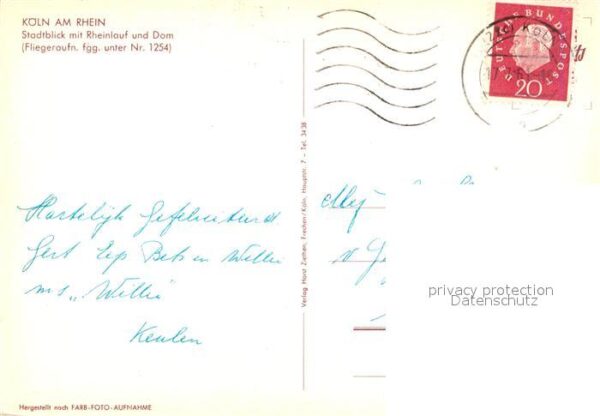 KÖLN AM RHEIN
Stadtblick mit Rheinlauf und Dom
(Fliegeraufn. fgg. unter Nr. 1254)
KÖLN
DEUTSCHE BUNDESPOST
20
Verlag Horst Ziethen, Frechen/Köln, Hauptstr. 7 - Tel. 3438
Hartelijk Gefeliciteerd
Gert Eep Bets en Willie
m s „Willie"
Keulen
Mej
v
privacy protection
Datenschutz
Hergestellt nach FARB-FOTO-AUFNAHME